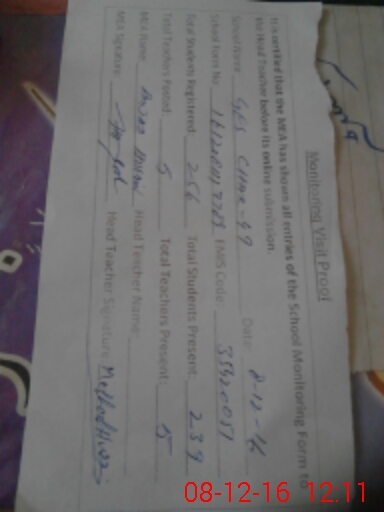 Monitoring Visit Proof
It is certified that the MEA has shown all entries of the School Monitoring Form to
the Head Teacher before its online submission.
School Name: GES Date: 8-12-16
School Form No. EMIS Code: 35920051
Total Students Registered: 256 Total Students Present: 239
Total Teachers Posted: 5 Total Teachers Present: 5
MEA Name: Head Teacher Name:
MEA Signature: Head Teacher Signature:
08-12-16 12:11